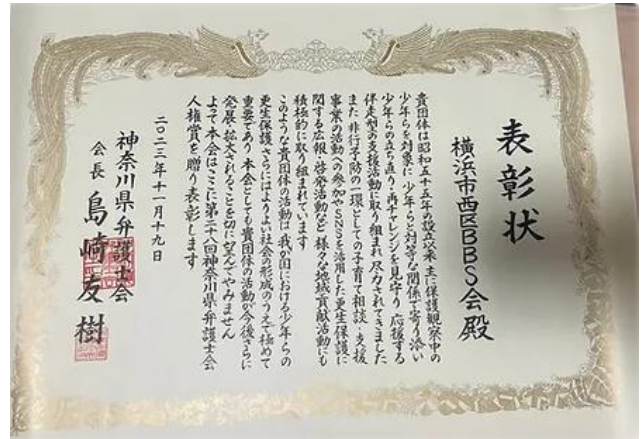 表彰状
横浜市西区BBS会殿
貴団体は昭和五十五年の設立以来 主に保護観察中の
少年らを対象に 少年らと対等な関係で寄り添い
少年らの立ち直り・再チャレンジを見守り 応援する
伴走型の支援活動に取り組まれ 尽力されてきました
また 非行予防の一環としての子育て相談・支援
事業の活動への参加やSNSを活用した更生保護に
関する広報・啓発活動など 様々な地域貢献活動にも
積極的に取り組まれています
このような貴団体の活動は 我が国における少年らの
更生保護 さらにはよりよい社会の形成のうえで極めて
重要であり 本会としても貴団体の活動が今後さらに
発展・拡大されることを切に望んでやみません
よって 本会はここに第二十八回神奈川県弁護士会
人権賞を贈り表彰します
二〇二三年十一月十九日
神奈川県弁護士会
会長 島崎友樹